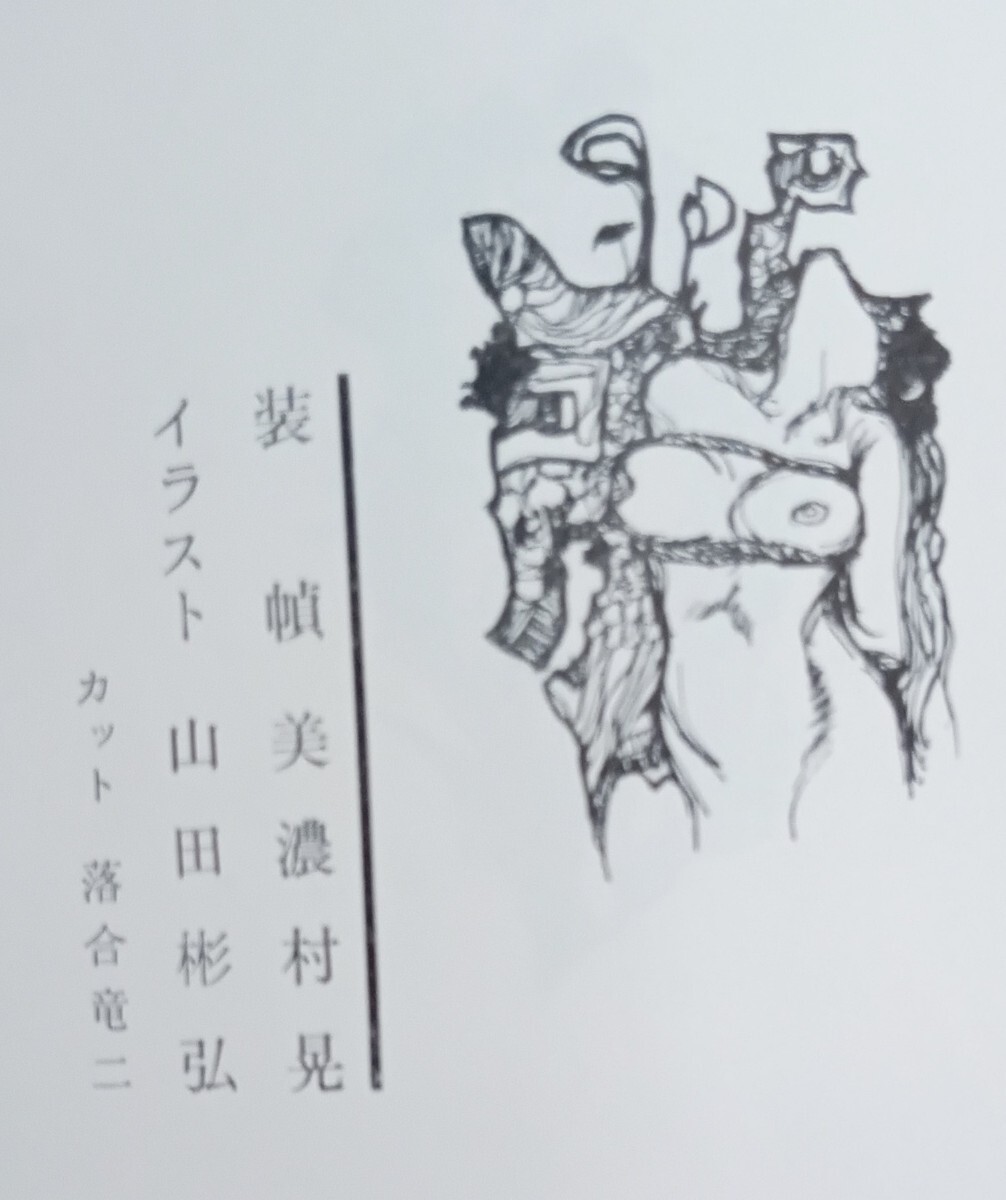 装幀 美濃村晃
イラスト 山田彬弘
カット 落合竜二